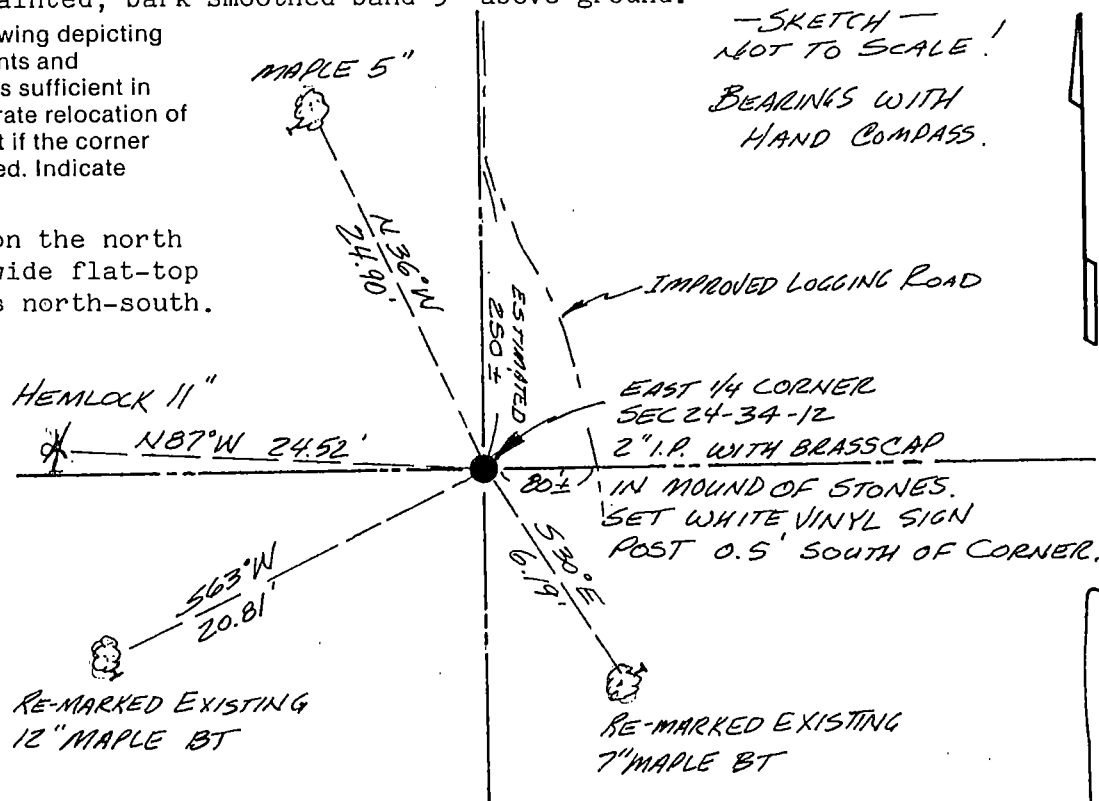 ainted, bark smoothed band 5' above ground.
wing depicting
nts and
s sufficient in
rate relocation of
t if the corner
ed. Indicate
on the north
wide flat-top
s north-south.
— SKETCH —
NOT TO SCALE!
BEARINGS WITH
HAND COMPASS.
MAPLE 5"
N 36° W
24.90'
ESTIMATED
250 ±
IMPROVED LOGGING ROAD
HEMLOCK 11"
N87°W 24.52'
EAST 1/4 CORNER
SEC 24-34-12
2" I.P. WITH BRASSCAP
IN MOUND OF STONES.
SET WHITE VINYL SIGN
POST 0.5' SOUTH OF CORNER.
80±
S63°W
20.81'
S30°E
6.19'
RE-MARKED EXISTING
12" MAPLE BT
RE-MARKED EXISTING
7" MAPLE BT